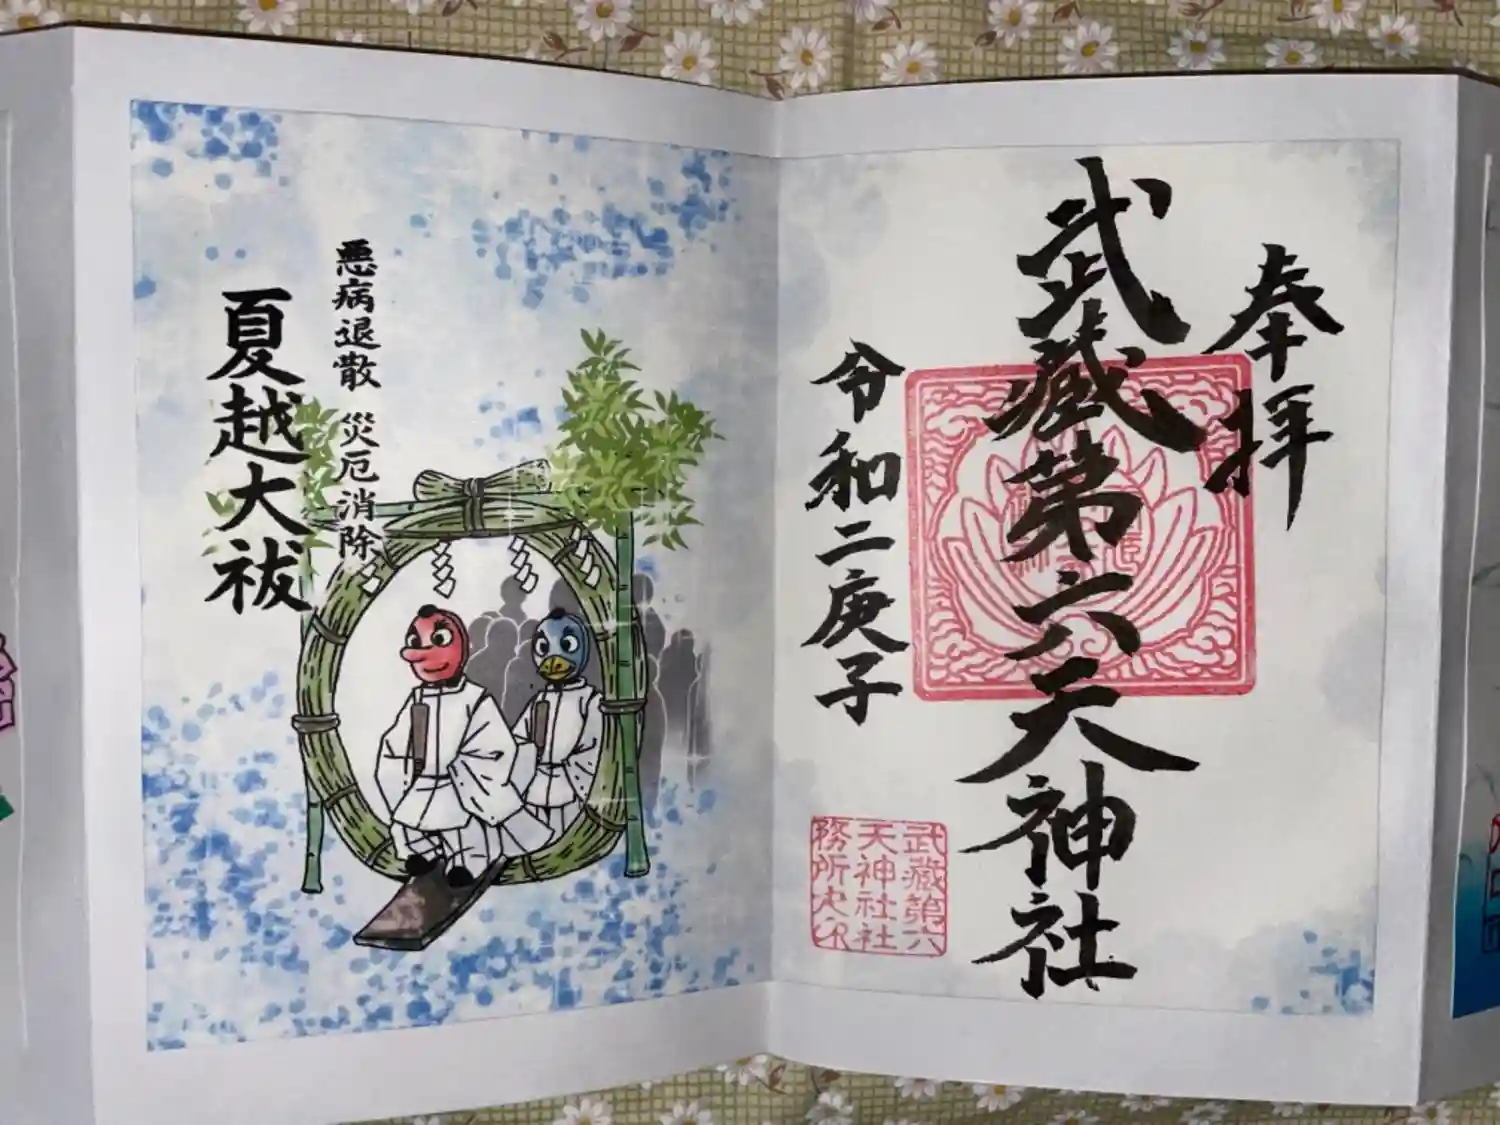 奉拝
武蔵第六天神社
令和二庚子
武蔵第六
天神社社
務所之印
悪病退散 災厄消除
夏越大祓